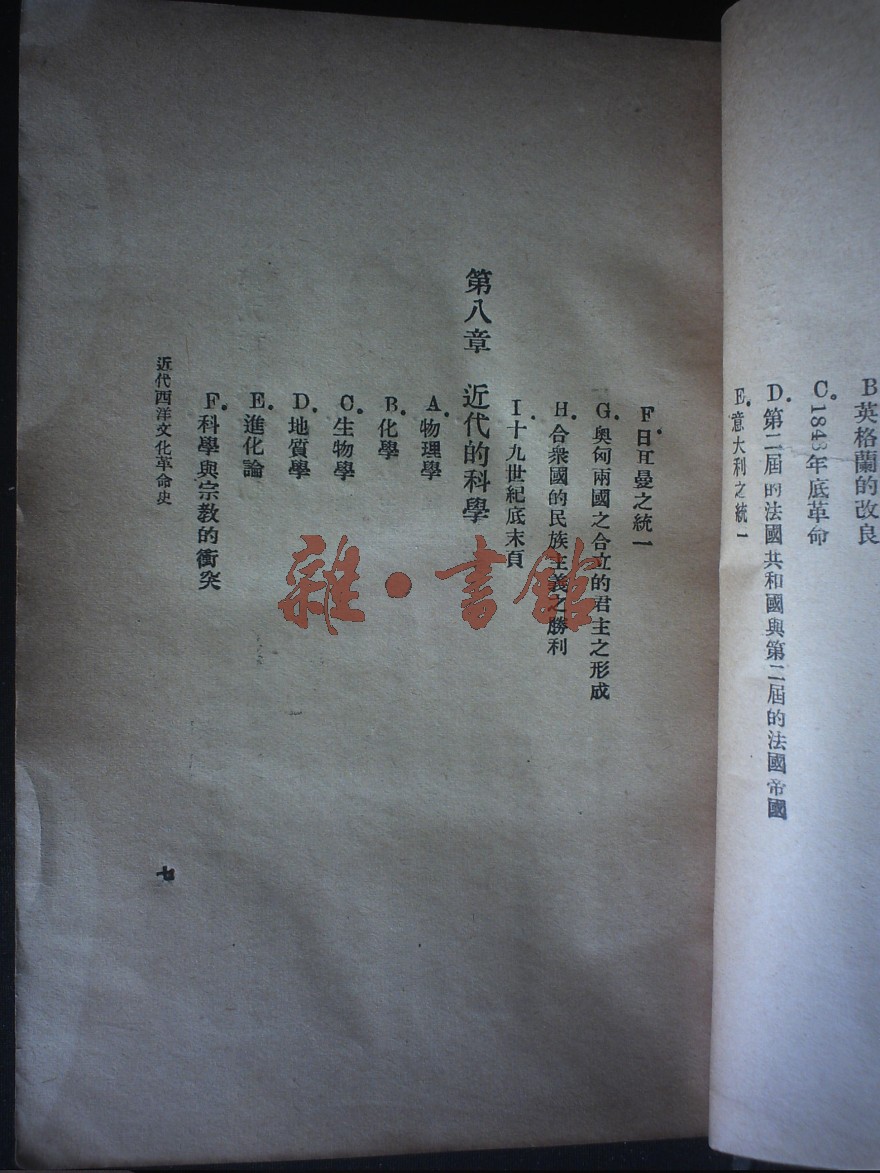 B英格蘭的改良
C.1848年底革命
D.第二屆的法國共和國與第二屆的法國帝國
E.意大利之統一
F.日耳曼之統一
G.奥匈兩國之合立的君主之形成
H.合衆國的民族主義之勝利
I.十九世紀底末頁
第八章 近代的科學
A.物理學
B.化學
C.生物學
D.地質學
E.進化論
F.科學與宗教的衝突
近代西洋文化革命史
七
雜·書館